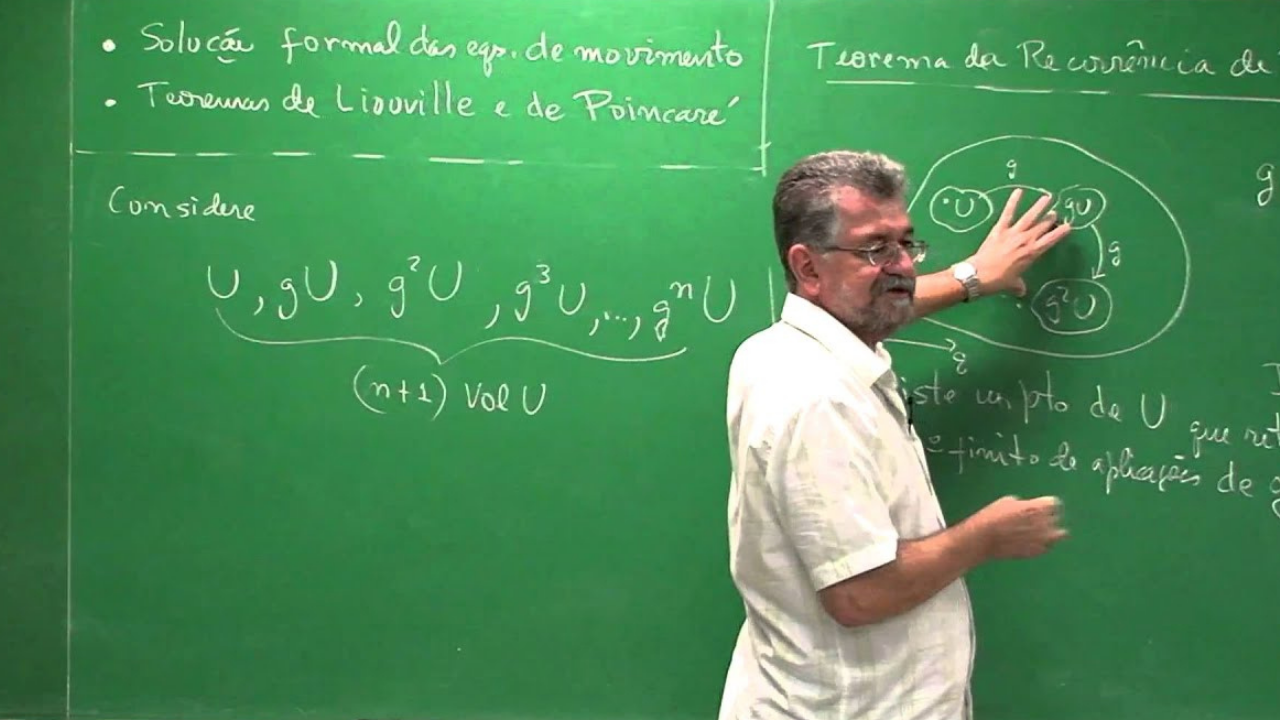 • Solução formal das eqs. de movimento
• Teoremas de Liouville e de Poincaré
Considere
U, gU, g²U, g³U, ..., gⁿU
(n+1) Vol U
Teorema da Recorrência de
g
g
•U gU
g
g²U
q
iste um pto de U que
º finito de aplicações de g